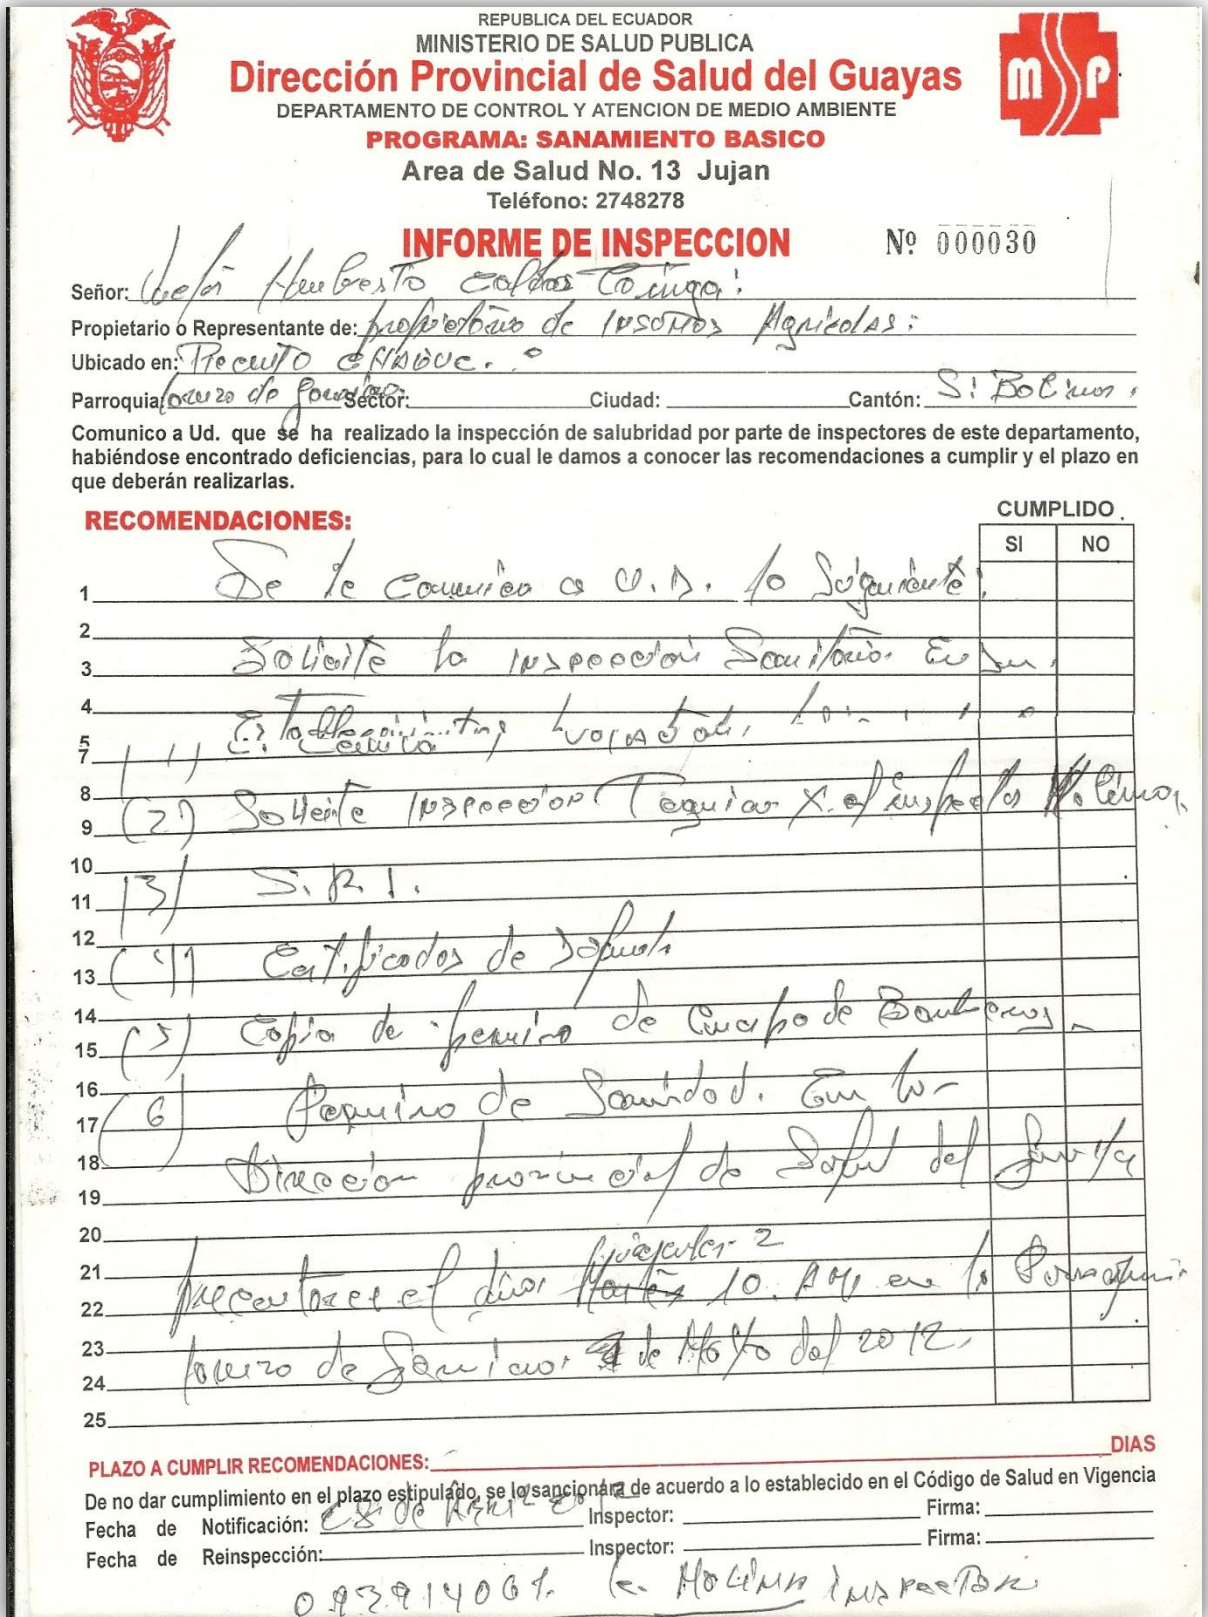 REPUBLICA DEL ECUADOR
MINISTERIO DE SALUD PUBLICA
Dirección Provincial de Salud del Guayas
DEPARTAMENTO DE CONTROL Y ATENCION DE MEDIO AMBIENTE
PROGRAMA: SANAMIENTO BASICO
Area de Salud No. 13 Jujan
Teléfono: 2748278
mSp
INFORME DE INSPECCION Nº 000030
Señor: Humberto
Propietario o Representante de: propietario de Agricolas:
Ubicado en: Recinto
Parroquia: Lorenzo de Sector: Ciudad: Cantón: S: Bolivar.
Comunico a Ud. que se ha realizado la inspección de salubridad por parte de inspectores de este departamento,
habiéndose encontrado deficiencias, para lo cual le damos a conocer las recomendaciones a cumplir y el plazo en
que deberán realizarlas.
RECOMENDACIONES: CUMPLIDO.
SI NO
1 Se le Comunica a U.D. lo Siguiente:
2
3 Solicite la inspeccion Sanitaria En su
4
5
7 (1)
8
9 (2) Solicite inspeccion x el inspector Molina
10
11 (3) S.R.I.
12
13 (4) Certificados de Salud
14
15 (5) Copia de permiso de Cuerpo de Bomberos
16
17 (6) Permiso de Sanidad. En la
18
19 Dirección provincial de Salud del Guayas
20
21 el dia 2
22 10. AM en la Parroquia
23 Lorenzo de de Mayo del 2012.
24
25
PLAZO A CUMPLIR RECOMENDACIONES: DIAS
De no dar cumplimiento en el plazo estipulado, se lo sancionára de acuerdo a lo establecido en el Código de Salud en Vigencia
Fecha de Notificación: de Abril Inspector: Firma:
Fecha de Reinspección: Inspector: Firma:
Molina inspector